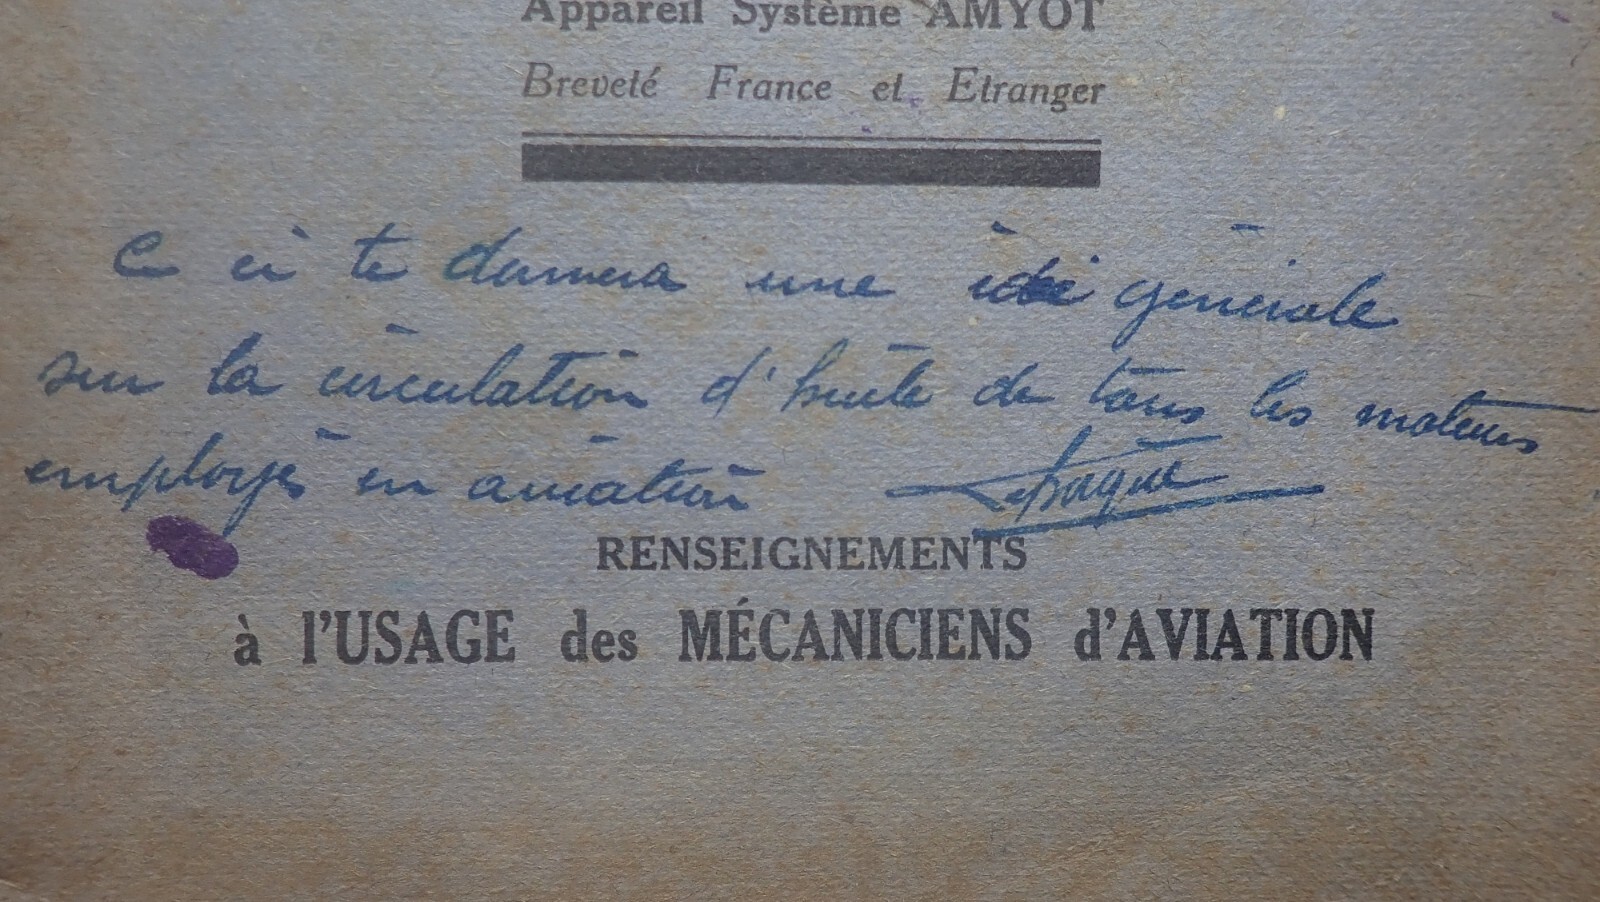 Appareil Système AMYOT
Breveté France et Etranger
Ce ci te donnera une idée générale
sur la circulation d'huile de tous les moteurs
employés en aviation
RENSEIGNEMENTS
à l'USAGE des MÉCANICIENS d'AVIATION